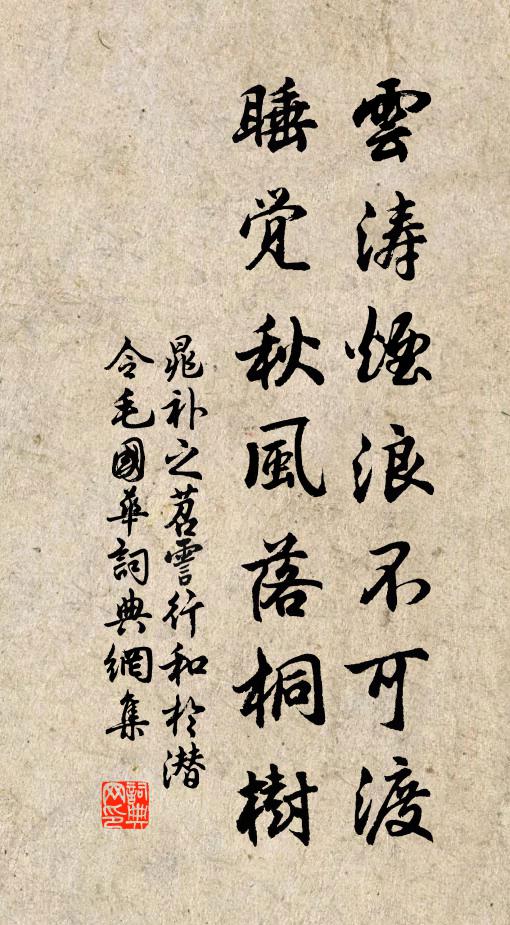 雲濤煙浪不可渡
睡觉秋風落桐樹
晁补之苕霅行和於潜
令毛國華詞典網集
詞典
网印